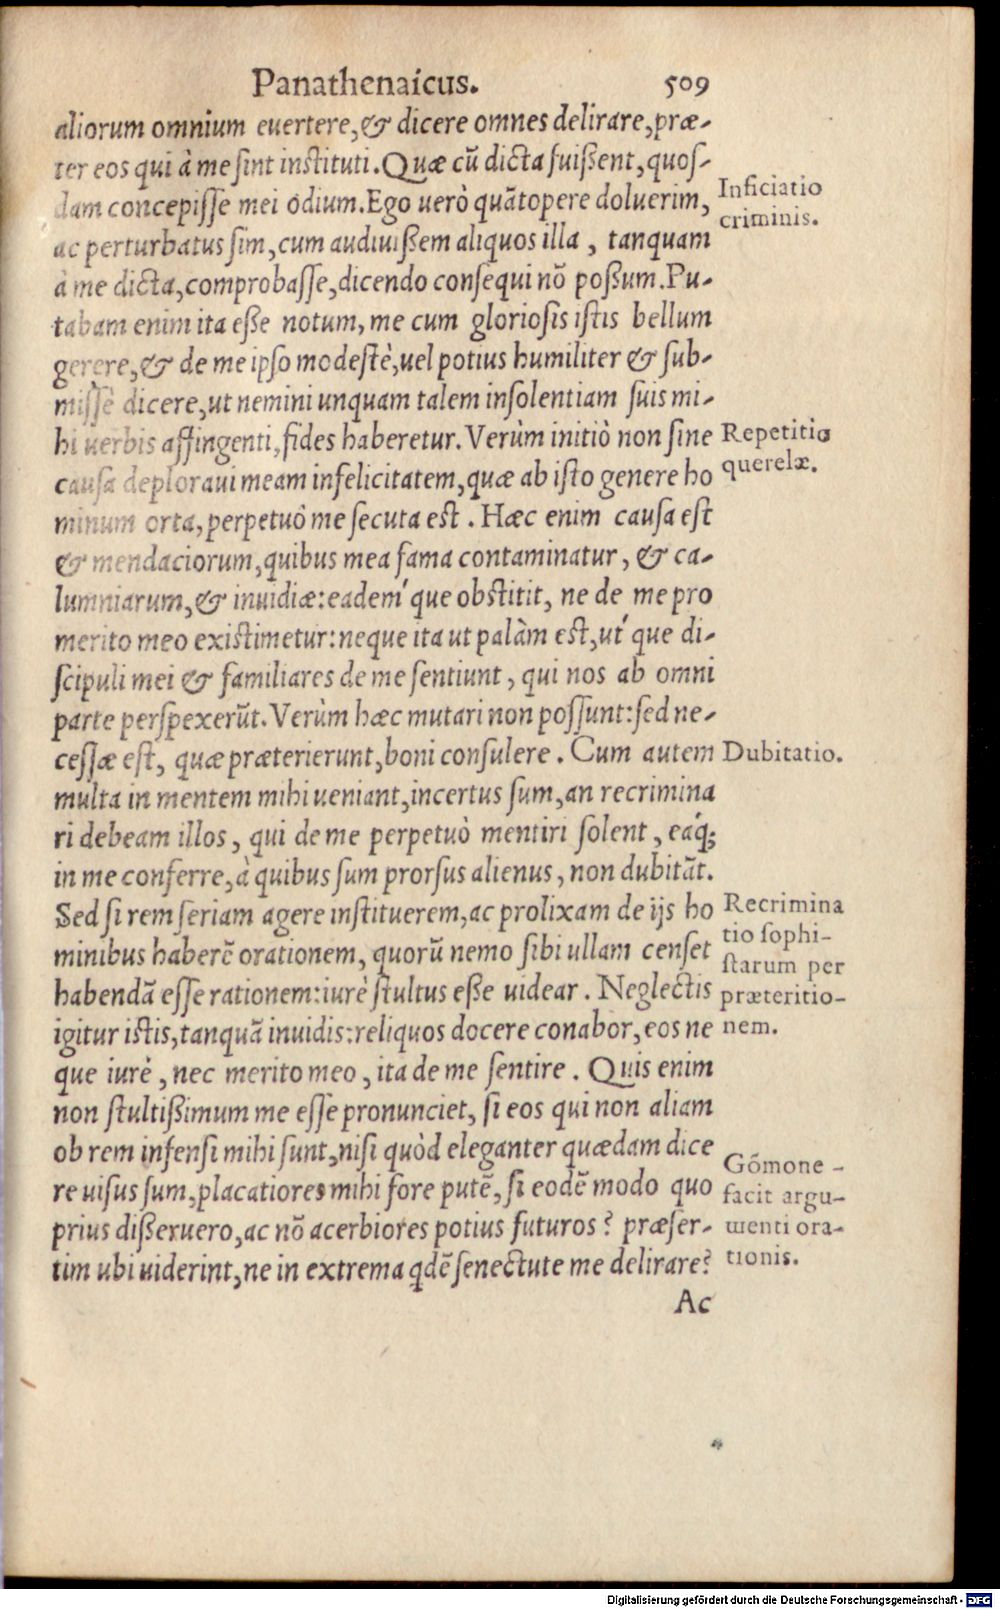 Panathenaicus. 509
aliorum omnium euertere, & dicere omnes delirare, præ-
ter eos qui à me sint instituti. Quæ cũ dicta fuißent, quos-
dam concepisse mei odium. Ego uerò quãtopere doluerim,
Inficiatio
criminis.
ac perturbatus sim, cum audiuißem aliquos illa, tanquam
à me dicta, comprobasse, dicendo consequi nõ poßum. Pu-
tabam enim ita eße notum, me cum gloriosis istis bellum
gerere, & de me ipso modestè, uel potius humiliter & sub-
missè dicere, ut nemini unquam talem insolentiam suis mi-
hi uerbis affingenti, fides haberetur. Verùm initiò non sine
Repetitio
querelæ.
causa deploraui meam infelicitatem, quæ ab isto genere ho
minum orta, perpetuò me secuta est. Hæc enim causa est
& mendaciorum, quibus mea fama contaminatur, & ca-
lumniarum, & inuidiæ: eadem´que obstitit, ne de me pro
merito meo existimetur: neque ita ut palàm est, ut´que di-
scipuli mei & familiares de me sentiunt, qui nos ab omni
parte perspexerũt. Verùm hæc mutari non possunt: sed ne-
cessæ est, quæ præterierunt, boni consulere. Cum autem
Dubitatio.
multa in mentem mihi ueniant, incertus sum, an recrimina
ri debeam illos, qui de me perpetuò mentiri solent, eaq́;
in me conferre, à quibus sum prorsus alienus, non dubitãt.
Sed si rem seriam agere instituerem, ac prolixam de ijs ho
minibus haberē orationem, quorũ nemo sibi ullam censet
habendã esse rationem: iurè stultus eße uidear. Neglectis
Recrimina
tio sophi-
starum per
præteritio-
nem.
igitur istis, tanquã inuidis: reliquos docere conabor, eos ne
que iurè, nec merito meo, ita de me sentire. Quis enim
non stultißimum me esse pronunciet, si eos qui non aliam
ob rem infensi mihi sunt, nisi quòd eleganter quædam dice
re uisus sum, placatiores mihi fore putē, si eodē modo quo
prius dißeruero, ac nõ acerbiores potius futuros? præser-
tim ubi uiderint, ne in extrema qdē senectute me delirare?
Gõmone-
facit argu-
menti ora-
tionis.
Ac
Digitalisierung gefördert durch die Deutsche Forschungsgemeinschaft - DFG